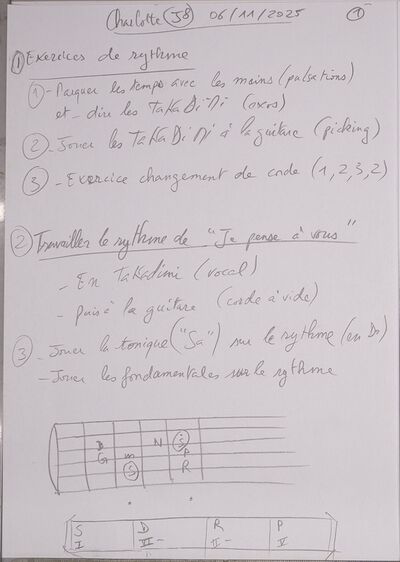 Charlotte J8 06/11/2025 1
1 Exercices de rythme
1 - Marquer les temps avec les mains (pulsations)
et - dire les TAKADiMi (exos)
2 - Jouer les TAKADiMi à la guitare (picking)
3 - Exercice changement de corde (1,2,3,2)
2 Travailler le rythme de "Je pense à vous"
- En Takadimi (vocal)
- puis à la guitare (corde à vide)
3 - Jouer la tonique ("Sa") sur le rythme (en Do)
- Jouer les fondamentales sur le rythme
D N S
G m P
S R
S D R P
I VI - II - V